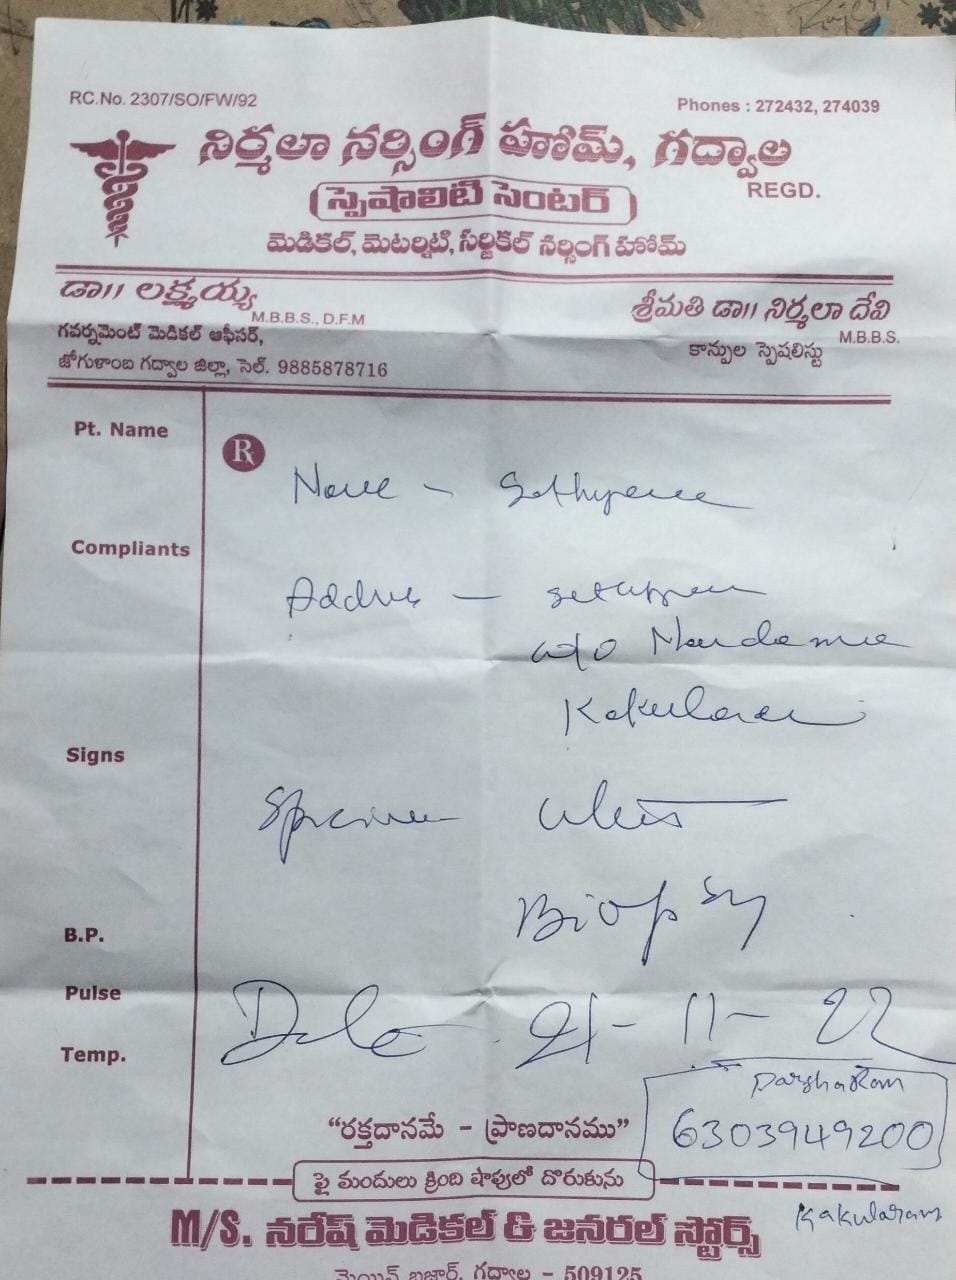 RC.No. 2307/SO/FW/92
Phones : 272432, 274039
నిర్మలా నర్సింగ్ హోమ్, గద్వాల
REGD.
స్పెషాలిటి సెంటర్
మెడికల్, మెటర్నిటి, సర్జికల్ నర్సింగ్ హోమ్
డా।। లక్ష్మయ్య
M.B.B.S., D.F.M
గవర్నమెంట్ మెడికల్ ఆఫీసర్,
జోగుళాంబ గద్వాల జిల్లా, సెల్. 9885878716
శ్రీమతి డా।। నిర్మలా దేవి
M.B.B.S.
కాన్పుల స్పెషలిస్టు
Pt. Name
Rx
Name -
Compliants
Address -
w/o
Signs
Biopsy
B.P.
Pulse
Date 21-11-22
Temp.
6303949200
"రక్తదానమే - ప్రాణదానము"
పై మందులు క్రింది షాపులో దొరుకును
Kakularam
M/S. నరేష్ మెడికల్ & జనరల్ స్టోర్స్
మెయిన్ బజార్, గద్వాల - 509125